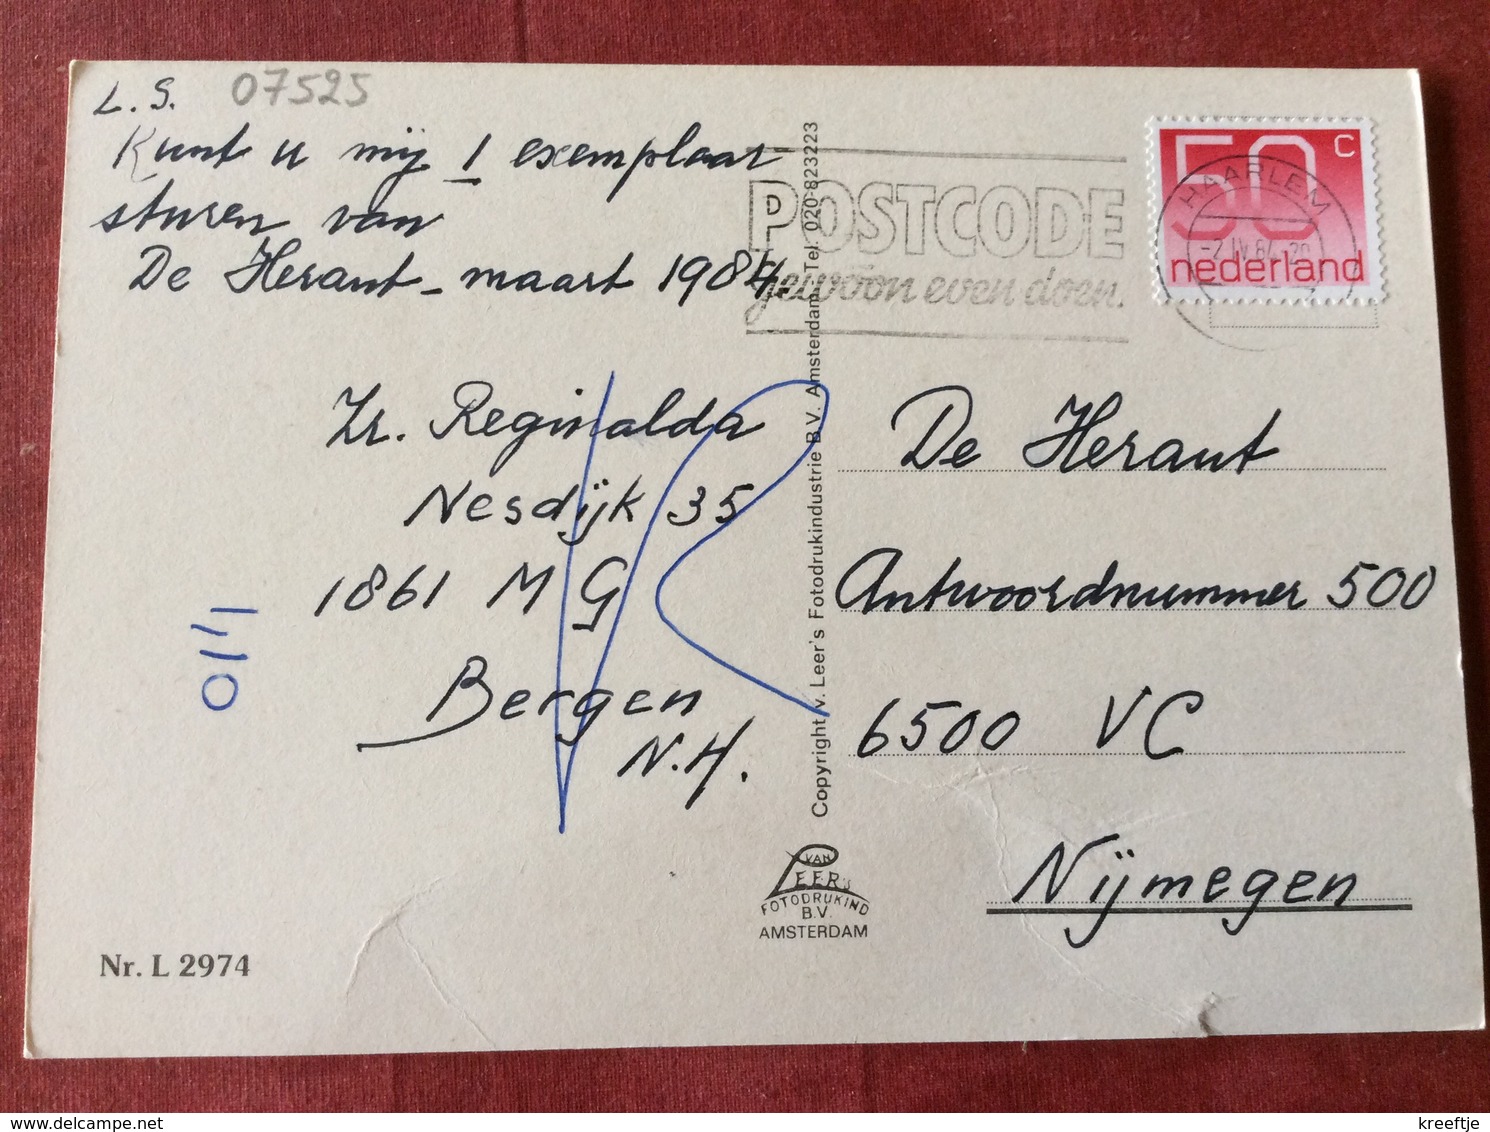 L.S. 07525
Kunt u mij 1 exemplaar
sturen van
De Heraut - maart 1984.
Zr. Reginalda
Nesdijk 35
1861 MG
Bergen
N.H.
Nr. L 2974
Copyright v. Leer's Fotodrukindustrie B.V. Amsterdam Tel. 020-823223
VAN
LEER's
FOTODRUKIND
B.V.
AMSTERDAM
POSTCODE
gewoon even doen.
50 c
nederland
HAARLEM
-2.IV.84
De Heraut
Antwoordnummer 500
6500 VC
Nijmegen
kreeftje